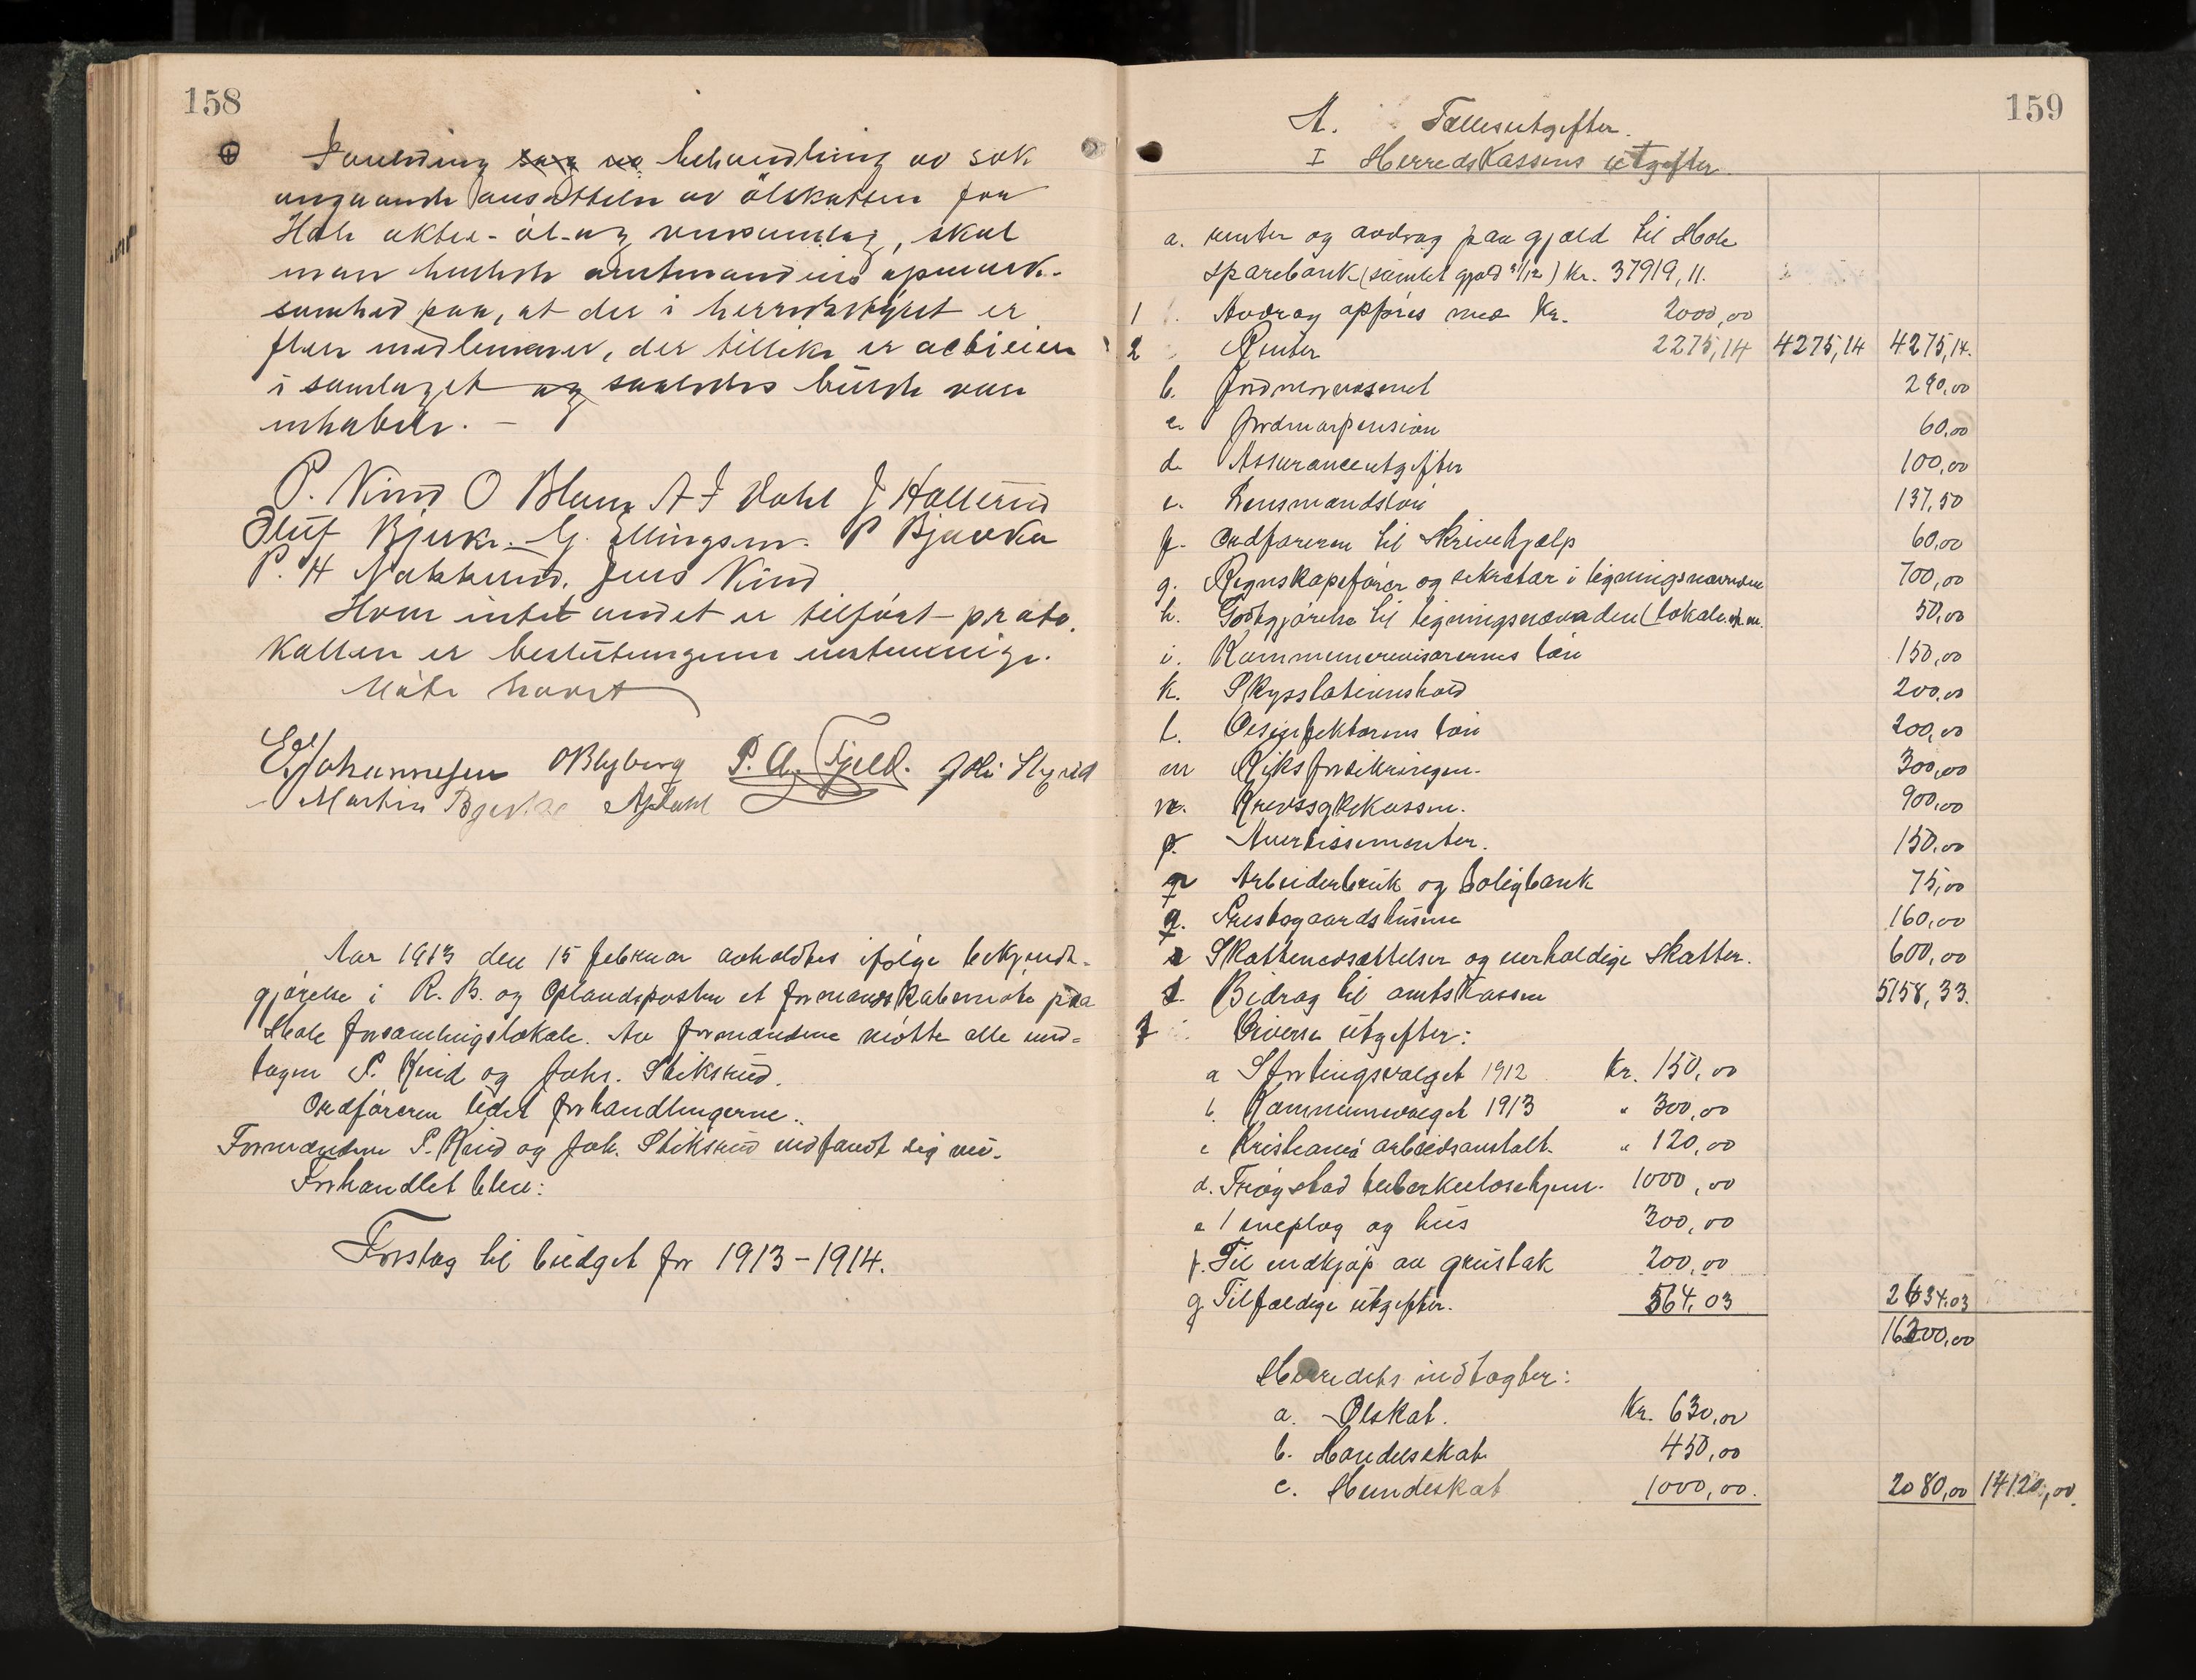 158
behandling av sak
angaaende ansættelse av ölskatten for
Hole aktie-öl-og vinsamlag, skal
man henlede amtmandens opmerk-
somhed paa, at der i herredsstyret er
flere medlemmer, der tillike er actieiere
i samlaget og saaledes burde være
inhabile. –
P. Kind O Blum A F Dahl J Hallerud
Oluf Bjerke. G. Ellingsen. P Bjerke
P. H Nakkerud. Jens Kind
Hvor intet andet er tilfört proto-
kollen er beslutningerne enstemmige.
Möte hævet
E Johannesen O Blyberg P. A. Fjeld.
Martin A F Dahl
Aar 1913 den 15 februar avholdtes ifølge bekjendt-
gjørelse i R. B. og Oplandsposten et formandskabsmøte paa
Hole forsamlingslokale. Av formændene møtte alle und-
tagen P. Kind og Johs. Stiksrud.
Ordføreren ledet forhandlingerne.
Formændene P. Kind og Joh. Stiksrud indfandt sig nu.
Forhandlet blev:
Forslag til budget for 1913-1914.
159
A. Fællesutgifter.
I Herredskassens utgifter.
a. renter og avdrag paa gjæld til Hole
sparebank (samlet gjæld 31/12) Kr. 37919,11.
1 Avdrag opføres med Kr. 2000,00
2 Renter 2275,14 4275,14 4275,14.
b. Jordmorvæsenet 290,00
c. Jordmorpension 60,00
d. Assuranceutgifter 100,00
e. Lensmandsløn 137,50
f. Ordføreren til Skrivehjælp 60,00
g. Regnskapsfører og sekretær i ligningsnævnden 700,00
h. Godtgjørelse til ligningsnævnden (lokale m.m. 50,00
i. Kommunerevisorernes løn 150,00
k. Skysstationshold 200,00
l. Desinfektørens løn 200,00
m Riksforsikringen. 300,00
n. Kredssykekassen. 900,00
p. Avertissementer. 150,00
Arbeiderbruk og boligbank 75,00
q. Prestegaardshusene 160,00
r Skattenedsættelser og uerholdige skatter. 600,00
s. Bidrag til amtskassen 5158,33.
Diverse utgifter:
a Stortingsvalget 1912 Kr. 150,00
b. Kommunevalget 1913 " 300,00
c Kristiania arbeidsanstalt. " 120,00
d. Trøgstad tuberkulosehjem. 1000,00
e 1 sneplog og hus 300,00
f. Til indkjøp av grustak 200,00
g Tilfældige utgifter. 564,03 2634,03
16200,00
Herredets indtægter:
a. Ølskat. Kr. 630,00
b. Handelsskat 450,00
c. Hundeskat 1000,00. 2080,00 14120,00.